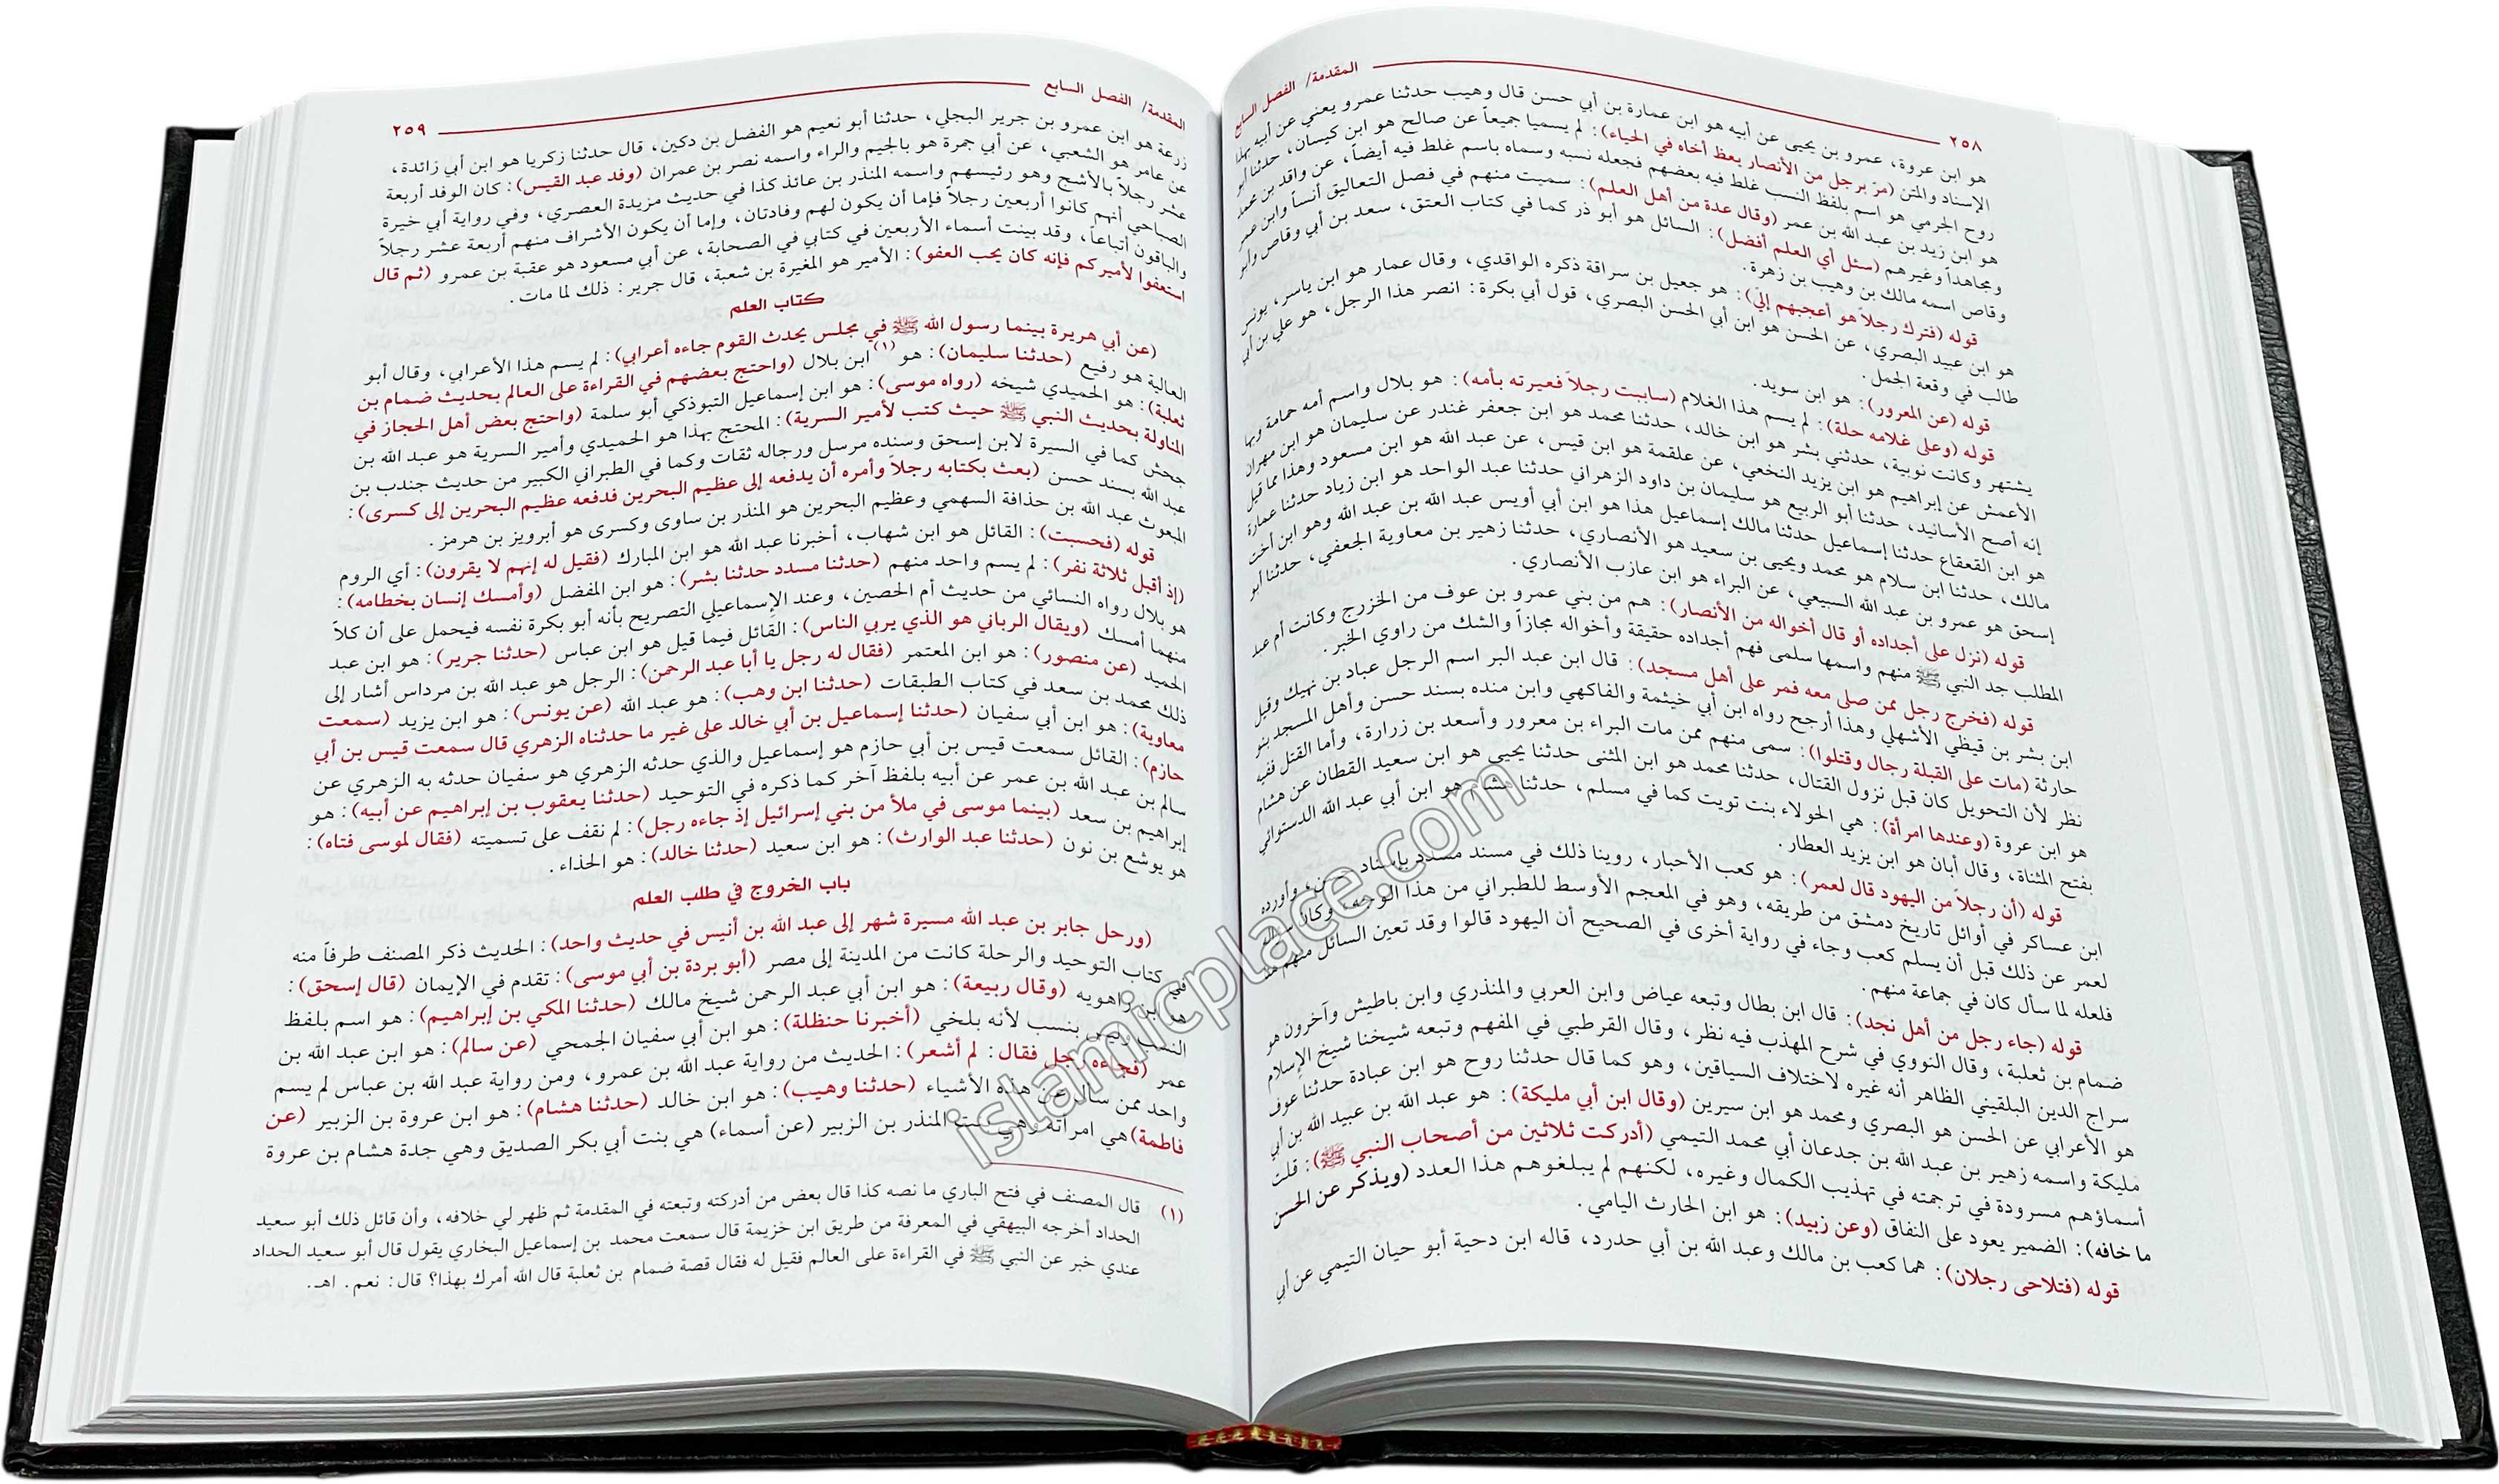 ٢٥٨ المقدمة/ الفصل السابع
هو ابن عروة، عمرو بن يحيى عن أبيه هو ابن عمارة بن أبي حسن قال وهيب حدثنا عمرو يعني عن أبيه بهذا
الإسناد والمتن (مرّ برجل من الأنصار يعظ أخاه في الحياء): لم يسميا جميعاً عن صالح هو ابن كيسان، حدثنا أبو
روح الحرمي هو اسم بلفظ النسب غلط فيه بعضهم فجعله نسبه وسماه باسم غلط فيه أيضاً، عن واقد بن محمد
هو ابن زيد بن عبد الله بن عمر (وقال عدة من أهل العلم): سميت منهم في فصل التعاليق أنساً وابن عمر
ومجاهداً وغيرهم (سئل أي العلم أفضل): السائل هو أبو ذر كما في كتاب العتق، سعد بن أبي وقاص وأبو
وقاص اسمه مالك بن وهيب بن زهرة.
قوله (فترك رجلاً هو أعجبهم إليّ): هو جعيل بن سراقة ذكره الواقدي، وقال عمار هو ابن ياسر، يونس
هو ابن عبيد البصري، عن الحسن هو ابن أبي الحسن البصري، قول أبي بكرة: انصر هذا الرجل، هو علي بن أبي
طالب في وقعة الجمل.
قوله (عن المعرور): هو ابن سويد.
قوله (وعلى غلامه حلة): لم يسم هذا الغلام (ساببت رجلاً فعيرته بأمه): هو بلال واسم أمه حمامة وبها
يشتهر وكانت نوبية، حدثني بشر هو ابن خالد، حدثنا محمد هو ابن جعفر غندر عن سليمان هو ابن مهران
الأعمش عن إبراهيم هو ابن يزيد النخعي، عن علقمة هو ابن قيس، عن عبد الله هو ابن مسعود وهذا مما قيل
إنه أصح الأسانيد، حدثنا أبو الربيع هو سليمان بن داود الزهراني حدثنا عبد الواحد هو ابن زياد حدثنا عمارة
هو ابن القعقاع حدثنا إسماعيل حدثنا مالك إسماعيل هذا هو ابن أبي أويس عبد الله بن عبد الله وهو ابن أخت
مالك، حدثنا ابن سلام هو محمد ويحيى بن سعيد هو الأنصاري، حدثنا زهير بن معاوية الجعفي، حدثنا أبو
إسحق هو عمرو بن عبد الله السبيعي، عن البراء هو ابن عازب الأنصاري.
قوله (نزل على أجداده أو قال أخواله من الأنصار): هم من بني عمرو بن عوف من الخزرج وكانت أم عبد
المطلب جد النبي ﷺ منهم واسمها سلمى فهم أجداده حقيقة وأخواله مجازاً والشك من راوي الخبر.
قوله (فخرج رجل ممن صلى معه فمر على أهل مسجد): قال ابن عبد البر اسم الرجل عباد بن نهيك وقيل
ابن بشر بن قيظي الأشهلي وهذا أرجح رواه ابن أبي خيثمة والفاكهي وابن منده بسند حسن وأهل المسجد بنو
حارثة (مات على القبلة رجال وقتلوا): سمى منهم ممن مات البراء بن معرور وأسعد بن زرارة، وأما القتل ففيه
نظر لأن التحويل كان قبل نزول القتال، حدثنا محمد هو ابن المثنى حدثنا يحيى هو ابن سعيد القطان عن هشام
هو ابن عروة (وعندها امرأة): هي الحولاء بنت تويت كما في مسلم، حدثنا هشام هو ابن أبي عبد الله الدستوائي
بفتح المثناة، وقال أبان هو ابن يزيد العطار.
قوله (أن رجلاً من اليهود قال لعمر): هو كعب الأحبار، روينا ذلك في مسند مسدد بإسناد حسن، وأورده
ابن عساكر في أوائل تاريخ دمشق من طريقه، وهو في المعجم الأوسط للطبراني من هذا الوجه، وكان سؤاله
لعمر عن ذلك قبل أن يسلم كعب وجاء في رواية أخرى في الصحيح أن اليهود قالوا وقد تعين السائل منهم هنا
فلعله لما سأل كان في جماعة منهم.
قوله (جاء رجل من أهل نجد): قال ابن بطال وتبعه عياض وابن العربي والمنذري وابن باطيش وآخرون هو
ضمام بن ثعلبة، وقال النووي في شرح المهذب فيه نظر، وقال القرطبي في المفهم وتبعه شيخنا شيخ الإسلام
سراج الدين البلقيني الظاهر أنه غيره لاختلاف السياقين، وهو كما قال حدثنا روح هو ابن عبادة حدثنا عوف
هو الأعرابي عن الحسن هو البصري ومحمد هو ابن سيرين (وقال ابن أبي مليكة): هو عبد الله بن عبيد الله بن أبي
مليكة واسمه زهير بن عبد الله بن جدعان أبي محمد التيمي (أدركت ثلاثين من أصحاب النبي ﷺ): قلت
أسماؤهم مسرودة في ترجمته في تهذيب الكمال وغيره، لكنهم لم يبلغوهم هذا العدد (ويذكر عن الحسن
ما خافه): الضمير يعود على النفاق (وعن زبيد): هو ابن الحارث اليامي.
قوله (فتلاحى رجلان): هما كعب بن مالك وعبد الله بن أبي حدرد، قاله ابن دحية أبو حيان التيمي عن أبي
المقدمة/ الفصل السابع ٢٥٩
زرعة هو ابن عمرو بن جرير البجلي، حدثنا أبو نعيم هو الفضل بن دكين، قال حدثنا زكريا هو ابن أبي زائدة،
عن عامر هو الشعبي، عن أبي جمرة هو بالجيم والراء واسمه نصر بن عمران (وفد عبد القيس): كان الوفد أربعة
عشر رجلاً بالأشج وهو رئيسهم واسمه المنذر بن عائذ كذا في حديث مزيدة العصري، وفي رواية أبي خيرة
الصباحي أنهم كانوا أربعين رجلاً فإما أن يكون لهم وفادتان، وإما أن يكون الأشراف منهم أربعة عشر رجلاً
والباقون أتباعاً، وقد بينت أسماء الأربعين في كتابي في الصحابة، عن أبي مسعود هو عقبة بن عمرو (ثم قال
استعفوا لأميركم فإنه كان يحب العفو): الأمير هو المغيرة بن شعبة، قال جرير: ذلك لما مات.
كتاب العلم
(عن أبي هريرة بينما رسول الله ﷺ في مجلس يحدث القوم جاءه أعرابي): لم يسم هذا الأعرابي، وقال أبو
العالية هو رفيع (حدثنا سليمان): هو(١) ابن بلال (واحتج بعضهم في القراءة على العالم بحديث ضمام بن
ثعلبة): هو الحميدي شيخه (رواه موسى): هو ابن إسماعيل التبوذكي أبو سلمة (واحتج بعض أهل الحجاز في
المناولة بحديث النبي ﷺ حيث كتب لأمير السرية): المحتج بهذا هو الحميدي وأمير السرية هو عبد الله بن
جحش كما في السيرة لابن إسحق وسنده مرسل ورجاله ثقات وكما في الطبراني الكبير من حديث جندب بن
عبد الله بسند حسن (بعث بكتابه رجلاً وأمره أن يدفعه إلى عظيم البحرين فدفعه عظيم البحرين إلى كسرى):
المبعوث عبد الله بن حذافة السهمي وعظيم البحرين هو المنذر بن ساوى وكسرى هو أبرويز بن هرمز.
قوله (فحسبت): القائل هو ابن شهاب، أخبرنا عبد الله هو ابن المبارك (فقيل له إنهم لا يقرون): أي الروم
(إذ أقبل ثلاثة نفر): لم يسم واحد منهم (حدثنا مسدد حدثنا بشر): هو ابن المفضل (وأمسك إنسان بخطامه):
هو بلال رواه النسائي من حديث أم الحصين، وعند الإسماعيلي التصريح بأنه أبو بكرة نفسه فيحمل على أن كلاً
منهما أمسك (ويقال الرباني هو الذي يربي الناس): القائل فيما قيل هو ابن عباس (حدثنا جرير): هو ابن عبد
الحميد (عن منصور): هو ابن المعتمر (فقال له رجل يا أبا عبد الرحمن): الرجل هو عبد الله بن مرداس أشار إلى
ذلك محمد بن سعد في كتاب الطبقات (حدثنا ابن وهب): هو عبد الله (عن يونس): هو ابن يزيد (سمعت
معاوية): هو ابن أبي سفيان (حدثنا إسماعيل بن أبي خالد على غير ما حدثناه الزهري قال سمعت قيس بن أبي
حازم): القائل سمعت قيس بن أبي حازم هو إسماعيل والذي حدثه الزهري هو سفيان حدثه به الزهري عن
سالم بن عبد الله بن عمر عن أبيه بلفظ آخر كما ذكره في التوحيد (حدثنا يعقوب بن إبراهيم عن أبيه): هو
إبراهيم بن سعد (بينما موسى في ملأ من بني إسرائيل إذ جاءه رجل): لم نقف على تسميته (فقال لموسى فتاه):
هو يوشع بن نون (حدثنا عبد الوارث): هو ابن سعيد (حدثنا خالد): هو الحذاء.
باب الخروج في طلب العلم
(ورحل جابر بن عبد الله مسيرة شهر إلى عبد الله بن أنيس في حديث واحد): الحديث ذكر المصنف طرفاً منه
في كتاب التوحيد والرحلة كانت من المدينة إلى مصر (أبو بردة بن أبي موسى): تقدم في الإيمان (قال إسحق):
هو ابن راهويه (وقال ربيعة): هو ابن أبي عبد الرحمن شيخ مالك (حدثنا المكي بن إبراهيم): هو اسم بلفظ
النسب وليس بنسب لأنه بلخي (أخبرنا حنظلة): هو ابن أبي سفيان الجمحي (عن سالم): هو ابن عبد الله بن
عمر (فجاءه رجل فقال: لم أشعر): الحديث من رواية عبد الله بن عمرو، ومن رواية عبد الله بن عباس لم يسم
واحد ممن سأل عن هذه الأشياء (حدثنا وهيب): هو ابن خالد (حدثنا هشام): هو ابن عروة بن الزبير (عن
فاطمة) هي امرأته وهي بنت المنذر بن الزبير (عن أسماء) هي بنت أبي بكر الصديق وهي جدة هشام بن عروة
(١) قال المصنف في فتح الباري ما نصه كذا قال بعض من أدركته وتبعته في المقدمة ثم ظهر لي خلافه، وأن قائل ذلك أبو سعيد
الحداد أخرجه البيهقي في المعرفة من طريق ابن خزيمة قال سمعت محمد بن إسماعيل البخاري يقول قال أبو سعيد الحداد
عندي خبر عن النبي ﷺ في القراءة على العالم فقيل له فقال قصة ضمام بن ثعلبة قال الله أمرك بهذا؟ قال: نعم. اهـ.
islamicplace.com